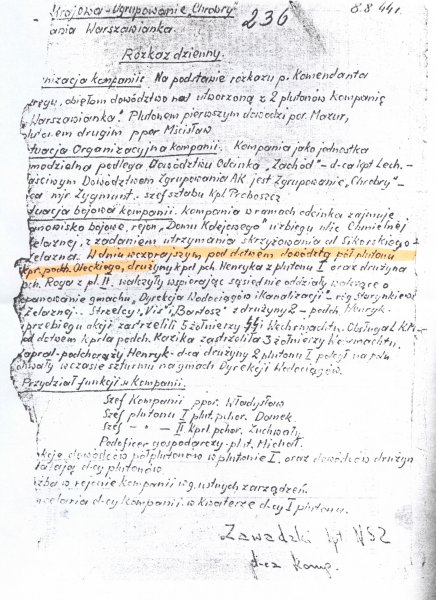 Krajowa - Ugrupowanie „Chrobry" 236 8.8 44 r.
ania Warszawianka
Rozkaz dzienny.
nizacja kompanii: Na podstawie rozkazu p. Komendanta
regu, objąłem dowództwo nad utworzoną z 2 plutonów Kompanię
Warszawianka". Plutonem pierwszym dowodzi por. Mazur,
plutonem drugim ppor Mścisław
tuacja Organizacyjna kompanii: Kompania jako jednostka
modzielna podlega Dowództwu Odcinka „Zachód" - d-ca kpt Lech. -
aściwym Dowództwem Zgrupowania AK jest Zgrupowanie „Chrobry" -
ca mjr. Zygmunt. - szef sztabu kpt. Proboszcz
tuacja bojowa kompanii. Kompania w ramach odcinka zajmuje
anowisko bojowe, rejon „Domu Kolejowego" u zbiegu ulic Chmielnej
Żelaznej, z zadaniem utrzymania skrzyżowania al Sikorskiego z
Żelazna. W dniu wczorajszym pod d-twem dowódcy pół plutonu
kpr. podch. Oleckiego, drużyny kprl pch. Henryka z plutonu I oraz drużyna
pch. Roga z pl. II. walczyły wspierając sąsiednie oddziały walczące o
opanowanie gmachu „Dyrekcja Wodociągów i Kanalizacji" - róg Starynkiewi
Żelaznej. Strzelcy „Vis", „Bartosz" z drużyny 2 - podch Henryk-
przebiegu akcji zastrzelili 5 żołnierzy Wehrmachtu. Obsługa L.K.M-
od d-twem kprla podch. Kazika zastrzeliła 3 żołnierzy Wehrmachtu.
apral-podchorąży Henryk- d-ca drużyny 2 plutonu I poległ na polu
chwały w czasie szturmu na gmach Dyrekcji Wodociągów.
Przydział funkcji w Kompanii.
Szef Kompanii ppor. Władysław
Szef plutonu I plut. pchor. Danek.
Szef - " - II kprl. pchor. Zuchwały
Podoficer gospodarczy - plut. Michał.
nkcje dowódców półplutonów w plutonie I. oraz dowódców drużyn
talają d-cy plutonów.
użba w rejonie kompanii wg. ustnych zarządzeń.
ncelaria d-cy kompanii w kwaterze d-cy I plutonu.
Zawadzki kpt NSZ
d-ca komp.